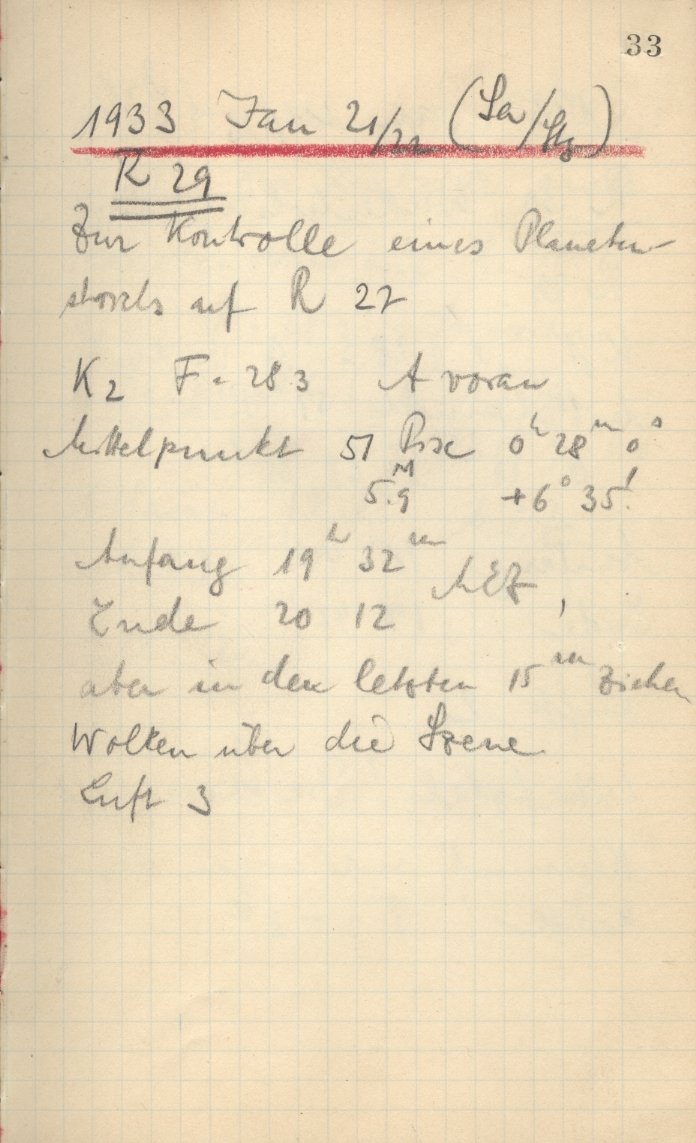 33
1933 Jan 21/22 (Sa/Stg)
R 29
Zur Kontrolle eines Planeten-
strichs auf R 27
K2 F = 283 A voran
Mittelpunkt 51 Psc 0h 28m 0s
5.9M +6° 35'
Anfang 19h 32m MEZ,
Ende 20 12
aber in den letzten 15m ziehen
Wolken über die Szene.
Luft 3